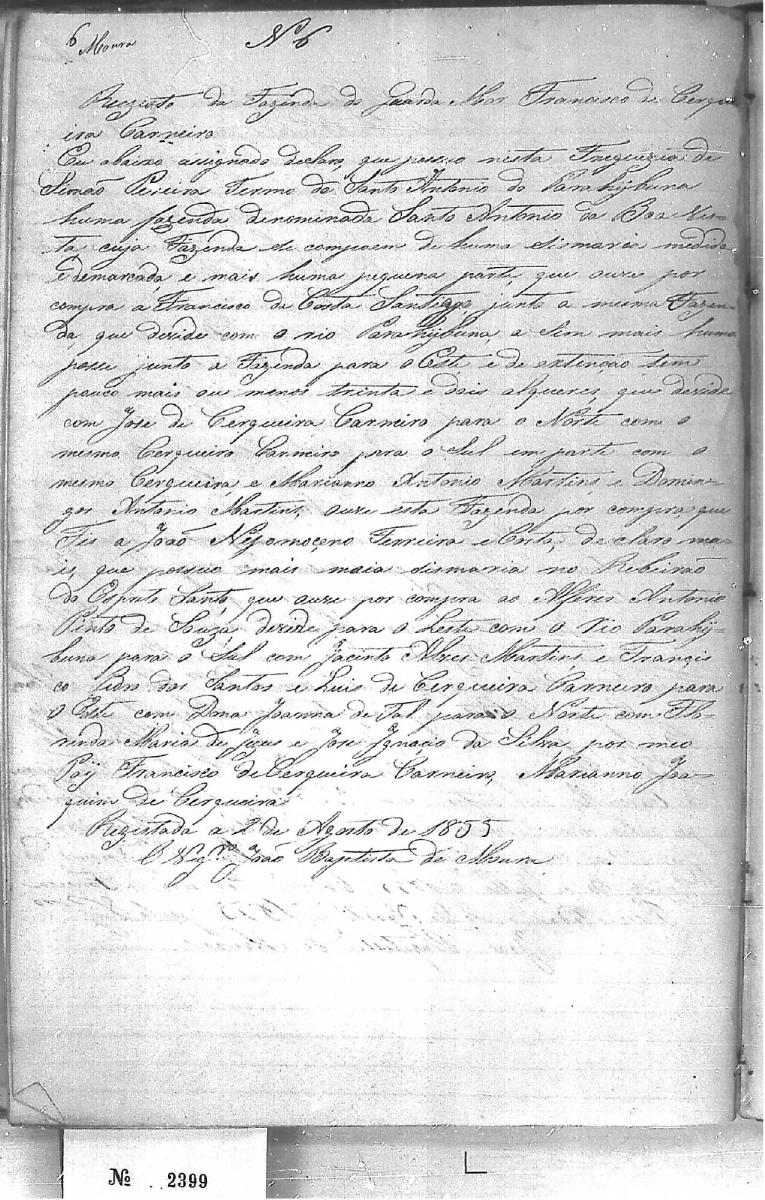 6 Moura
Nº 6
Rezisto da Fazenda do Guarda Mor Francisco de Cerque
ira Carneiro
Eu abaixo assignado declaro, que possuo nesta Freguezia de
Simão Pereira Termo de Santo Antonio do Parahybuna
huma fazenda denominada Santo Antonio da Boa Vis-
ta, cuja Fazenda se compoem de huma sismaria medida
e demarcada, e mais huma pequena parte, que ouve por
compra a Francisco da Costa Santiago junta a mesma Fazen-
da, que devide com o rio Parahybuna a sim mais huma
posse junto a Fazenda para o Este, e de extenção tem
pouco mais ou menos trinta e dois alqueres, que devide
com Jose de Cerqueira Carneiro para o Norte com o
mesmo Cerqueira Carneiro para o Sul em parte com o
mesmo Cerqueira, e Marianno Antonio Martins, e Domin-
gos Antonio Martins, ouve esta Fazenda por compra, que
Fes a João Nepomoceno Ferreira e Costa, de claro ma-
is, que possuo mais maia sismaria no Ribeirão
do Espirito Santo, que ouve por compra ao Alferes Antonio
Pinto de Souza, devide para o Leste com o rio Parahy-
buna para o Sul com Jacinto Alves Martins, e Francis
co Pedro dos Santos e Luis de Cerqueira Carneiro para
o Este com Dona Joanna de Tal para o Norte com
Maria de Jezus e Jose Ignacio da Silva, por meo
Pay Francisco de Cerqueira Carneiro, Marianno Joa-
quim de Cerqueira
Registada a 2 de Agosto de 1855
O Vigrº João Baptista de Moura
Nº 2399